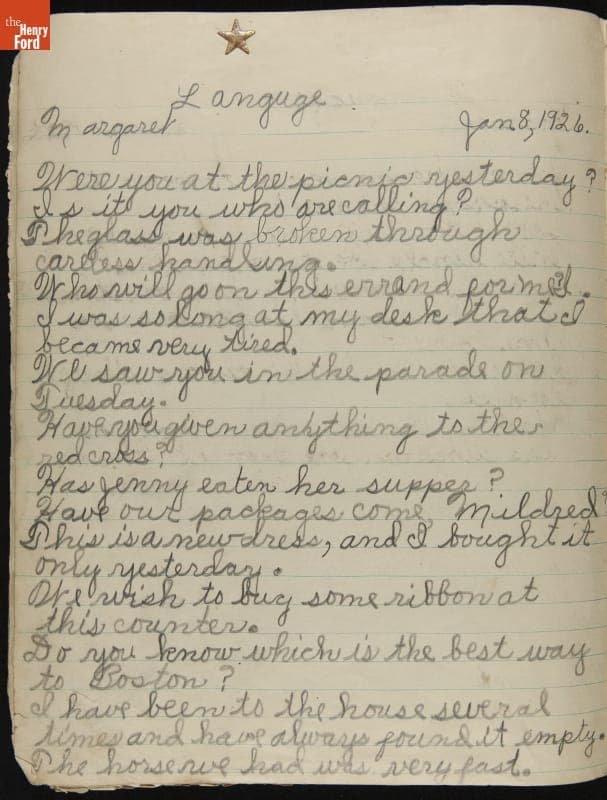 the
Henry
Ford
Languge
Margaret
Jan 8, 1926.
Were you at the picnic yesterday?
Is it you who are calling?
The glass was broken through
careless handling.
Who will go on this errand for me?
I was so long at my desk that I
became very tired.
We saw you in the parade on
Tuesday.
Have you given anything to the
red cross?
Has Jenny eaten her supper?
Have our packages come, Mildred?
This is a new dress, and I bought it
only yesterday.
We wish to buy some ribbon at
this counter.
Do you know which is the best way
to Boston?
I have been to the house several
times and have always found it empty.
The horse we had was very fast.